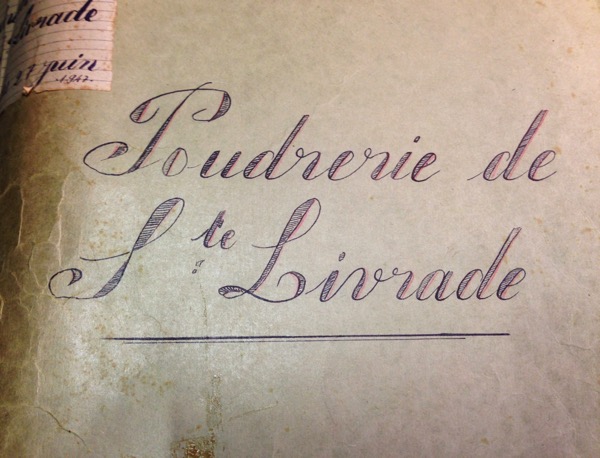 Livrade
27 juin
1947
Poudrerie de
Ste Livrade